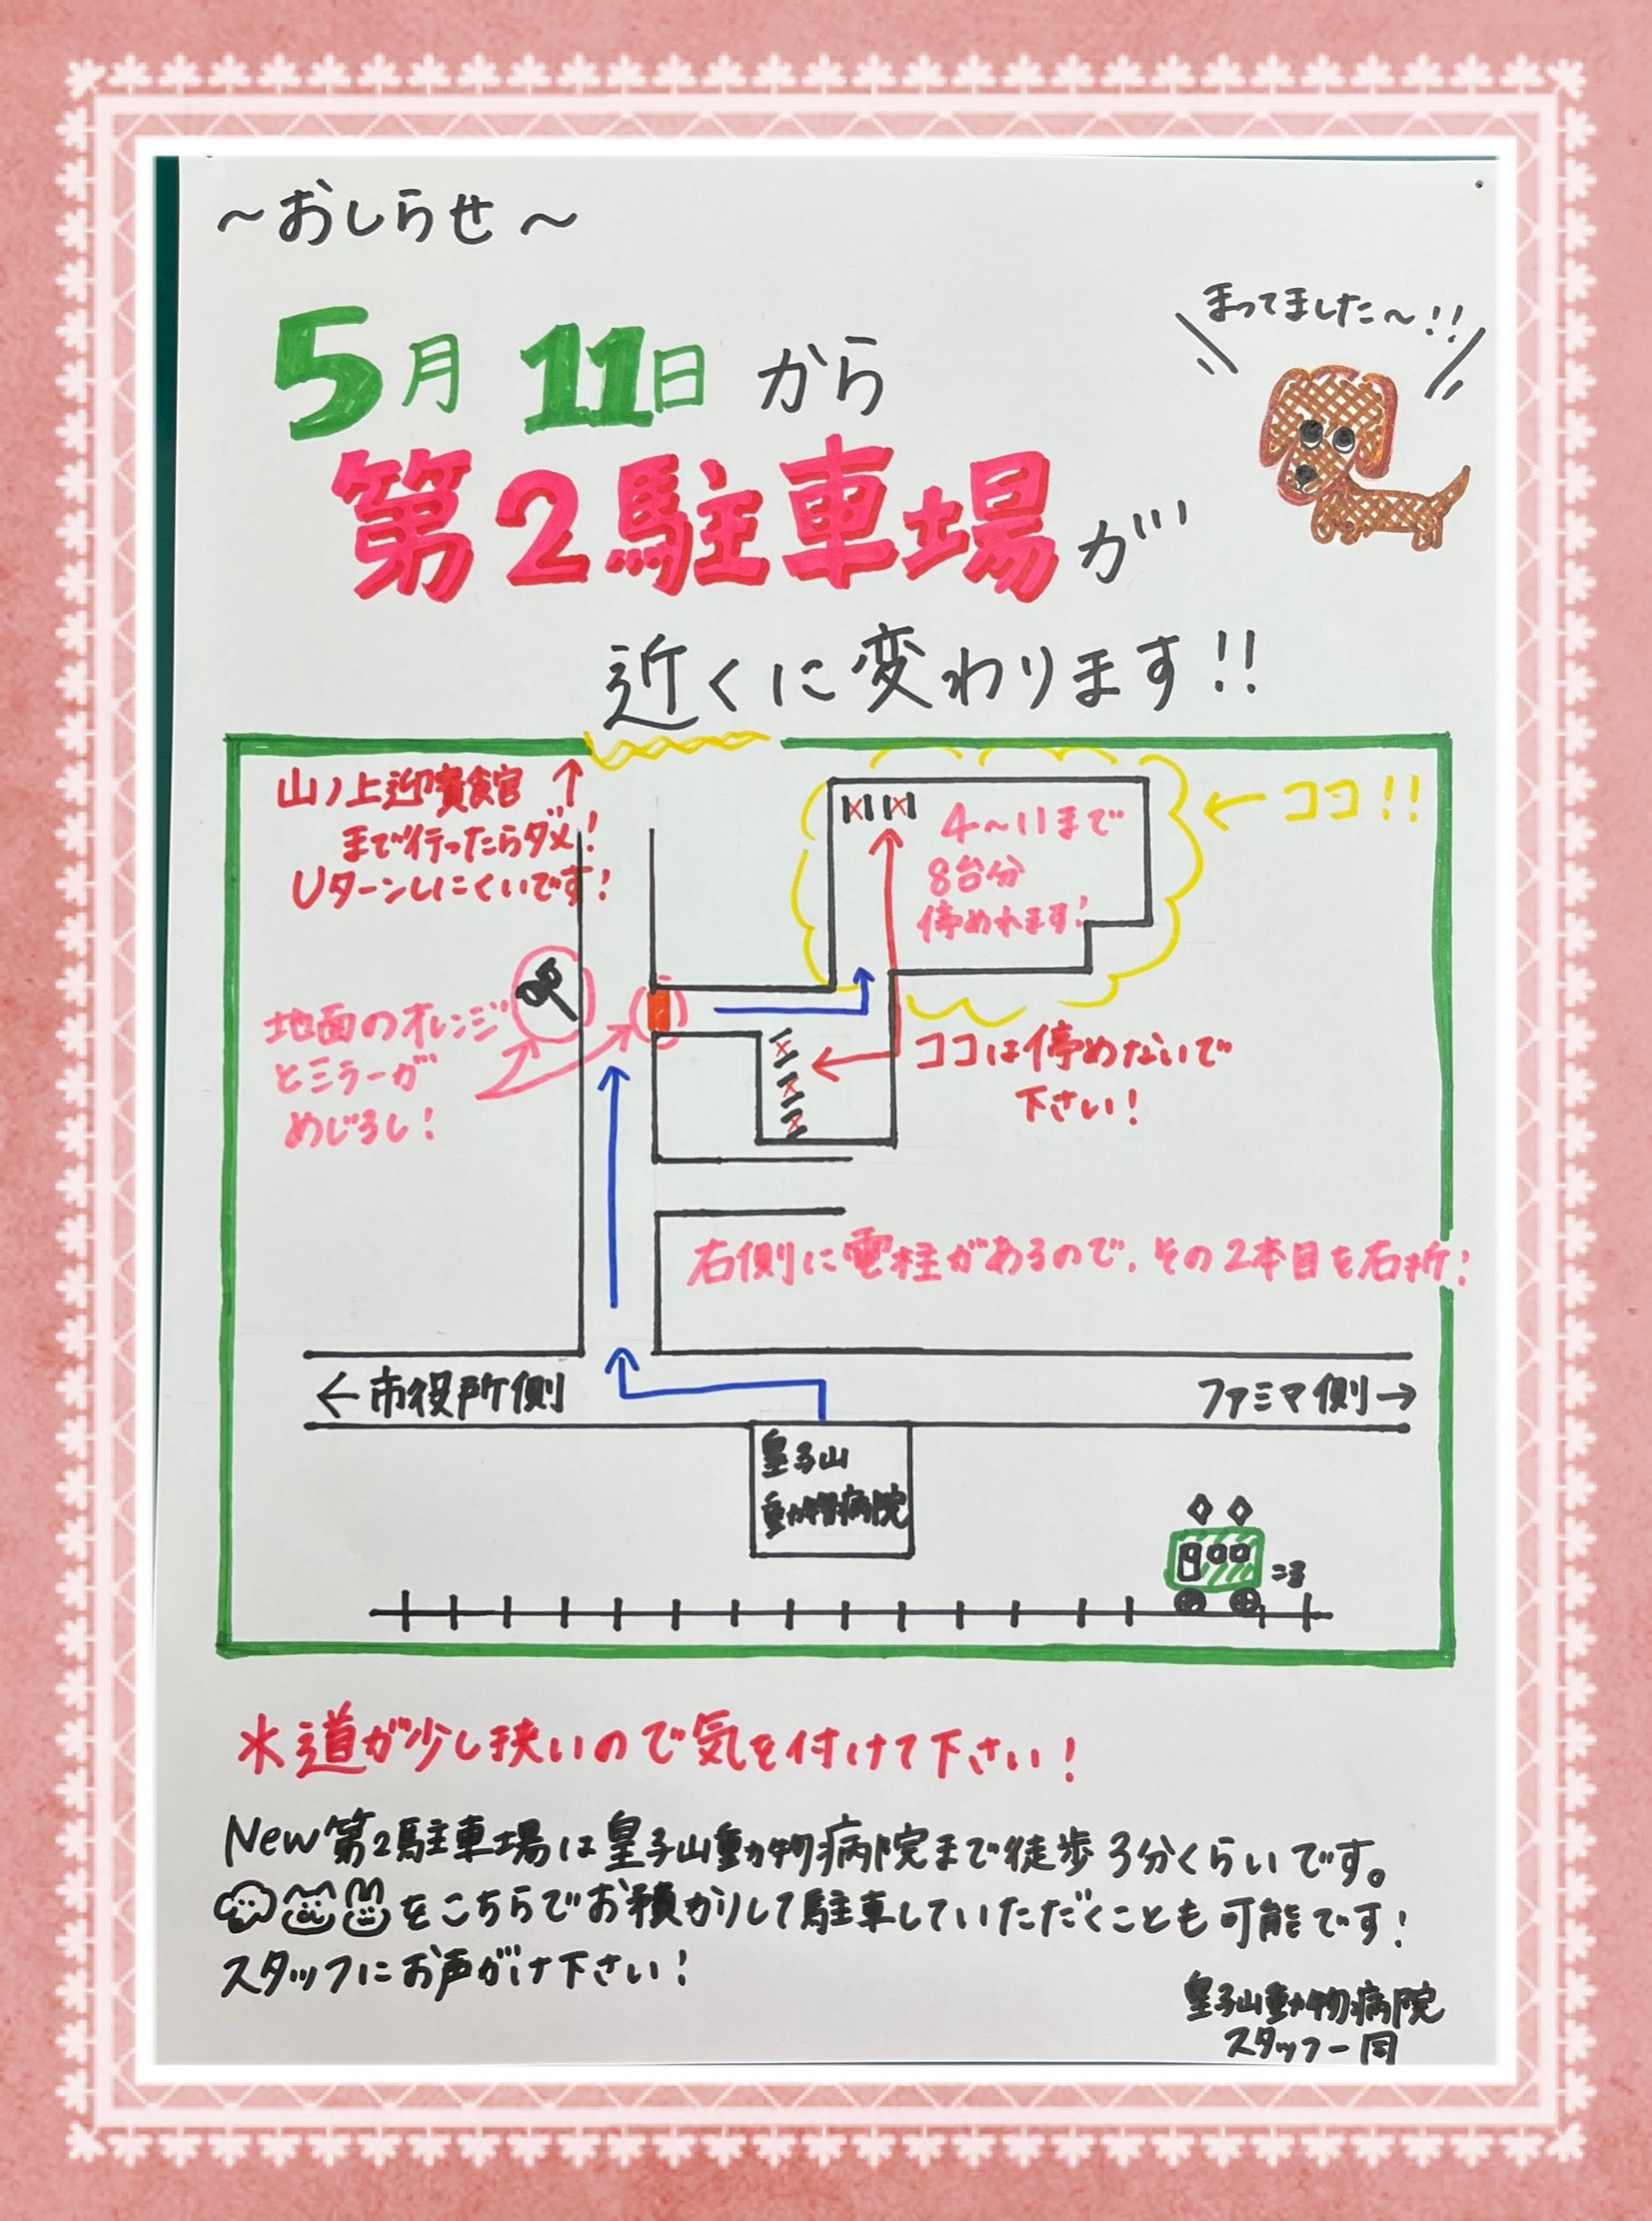 ～おしらせ～
まってました～!!
5月11日から
第2駐車場が
近くに変わります!!
山ノ上迎賓館↑
まで行ったらダメ!
Uターンしにくいです!
ココ!!
4～11まで
8台分
停めれます!
地面のオレンジ
とミラーが
めじるし!
ココは停めないで
下さい!
右側に電柱があるので、その2本目を右折!
←市役所側
ファミマ側→
皇子山
動物病院
※道が少し狭いので気を付けて下さい!
New第2駐車場は皇子山動物病院まで徒歩3分くらいです。
をこちらでお預かりして駐車していただくことも可能です!
スタッフにお声がけ下さい!
皇子山動物病院
スタッフ一同